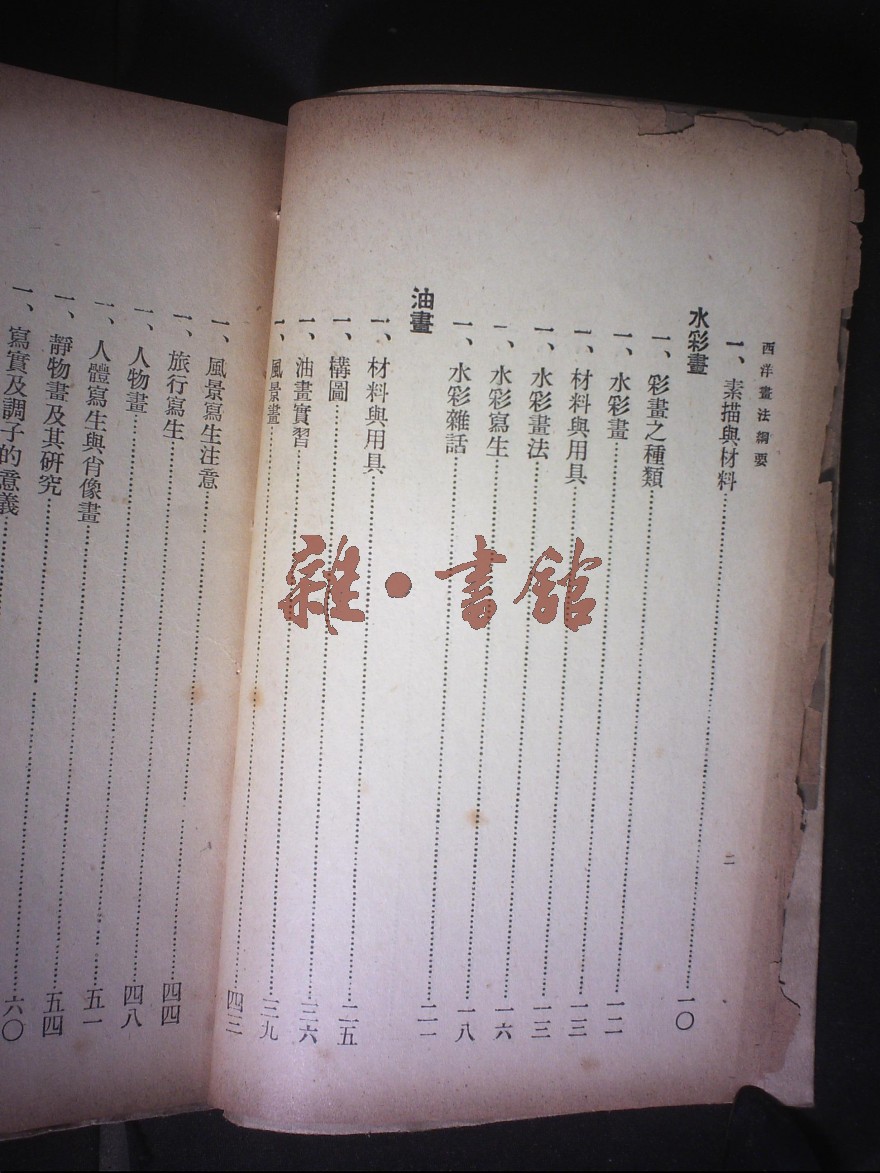 西洋畫法綱要
二
一、素描與材料……一〇
水彩畫
一、彩畫之種類……一二
一、水彩畫……一三
一、材料與用具……一三
一、水彩畫法……一六
一、水彩寫生……一八
一、水彩雜話……二一
油畫
一、材料與用具……二五
一、構圖……三六
一、油畫實習……三九
一、風景畫……四三
一、風景寫生注意……四四
一、旅行寫生……四八
一、人物畫……五一
一、人體寫生與肖像畫……五四
一、靜物畫及其研究……六〇
一、寫實及調子的意義……
雜·書館